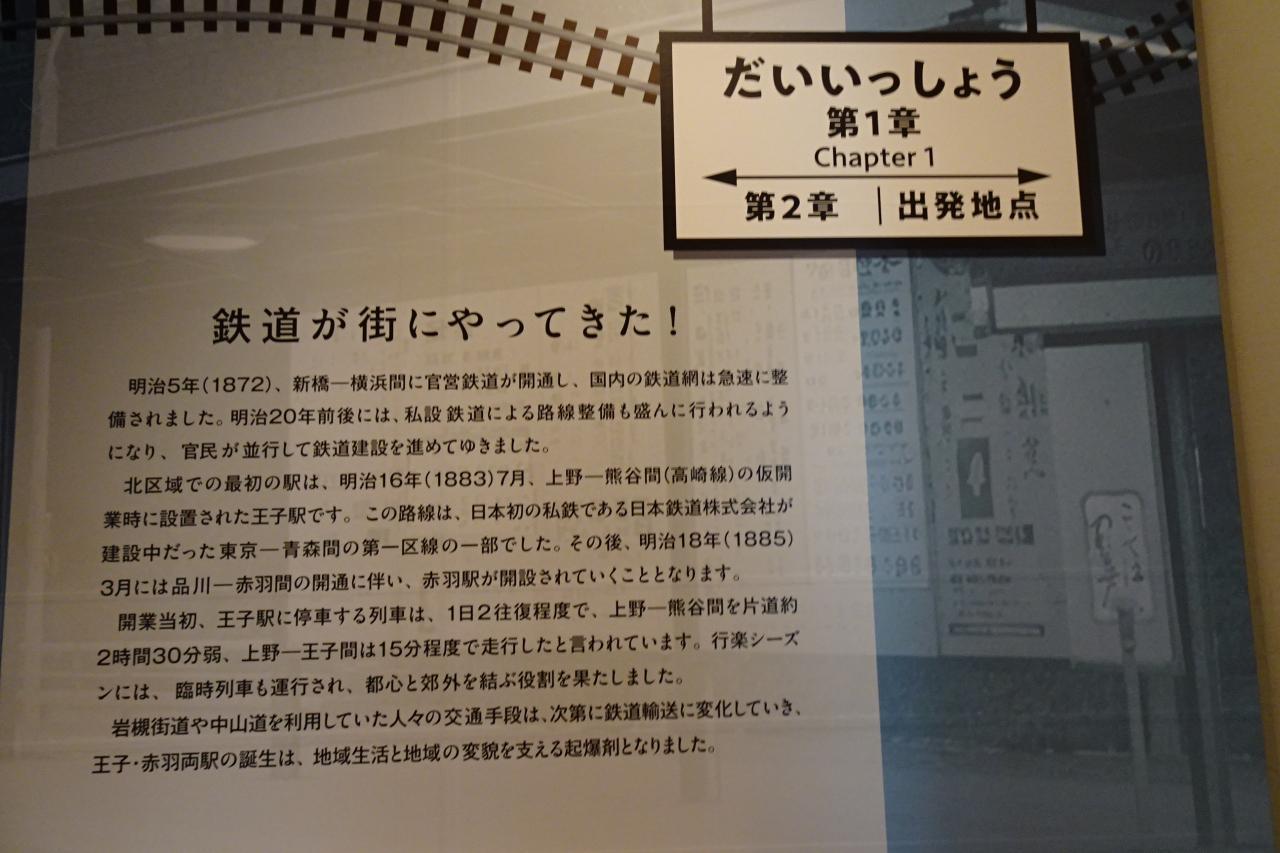 だいいっしょう
第1章
Chapter 1
第2章 | 出発地点
鉄道が街にやってきた!
明治5年(1872)、新橋―横浜間に官営鉄道が開通し、国内の鉄道網は急速に整
備されました。明治20年前後には、私設鉄道による路線整備も盛んに行われるよう
になり、官民が並行して鉄道建設を進めてゆきました。
北区域での最初の駅は、明治16年(1883)7月、上野―熊谷間(高崎線)の仮開
業時に設置された王子駅です。この路線は、日本初の私鉄である日本鉄道株式会社が
建設中だった東京―青森間の第一区線の一部でした。その後、明治18年(1885)
3月には品川―赤羽間の開通に伴い、赤羽駅が開設されていくこととなります。
開業当初、王子駅に停車する列車は、1日2往復程度で、上野―熊谷間を片道約
2時間30分弱、上野―王子間は15分程度で走行したと言われています。行楽シーズ
ンには、臨時列車も運行され、都心と郊外を結ぶ役割を果たしました。
岩槻街道や中山道を利用していた人々の交通手段は、次第に鉄道輸送に変化していき、
王子・赤羽両駅の誕生は、地域生活と地域の変貌を支える起爆剤となりました。